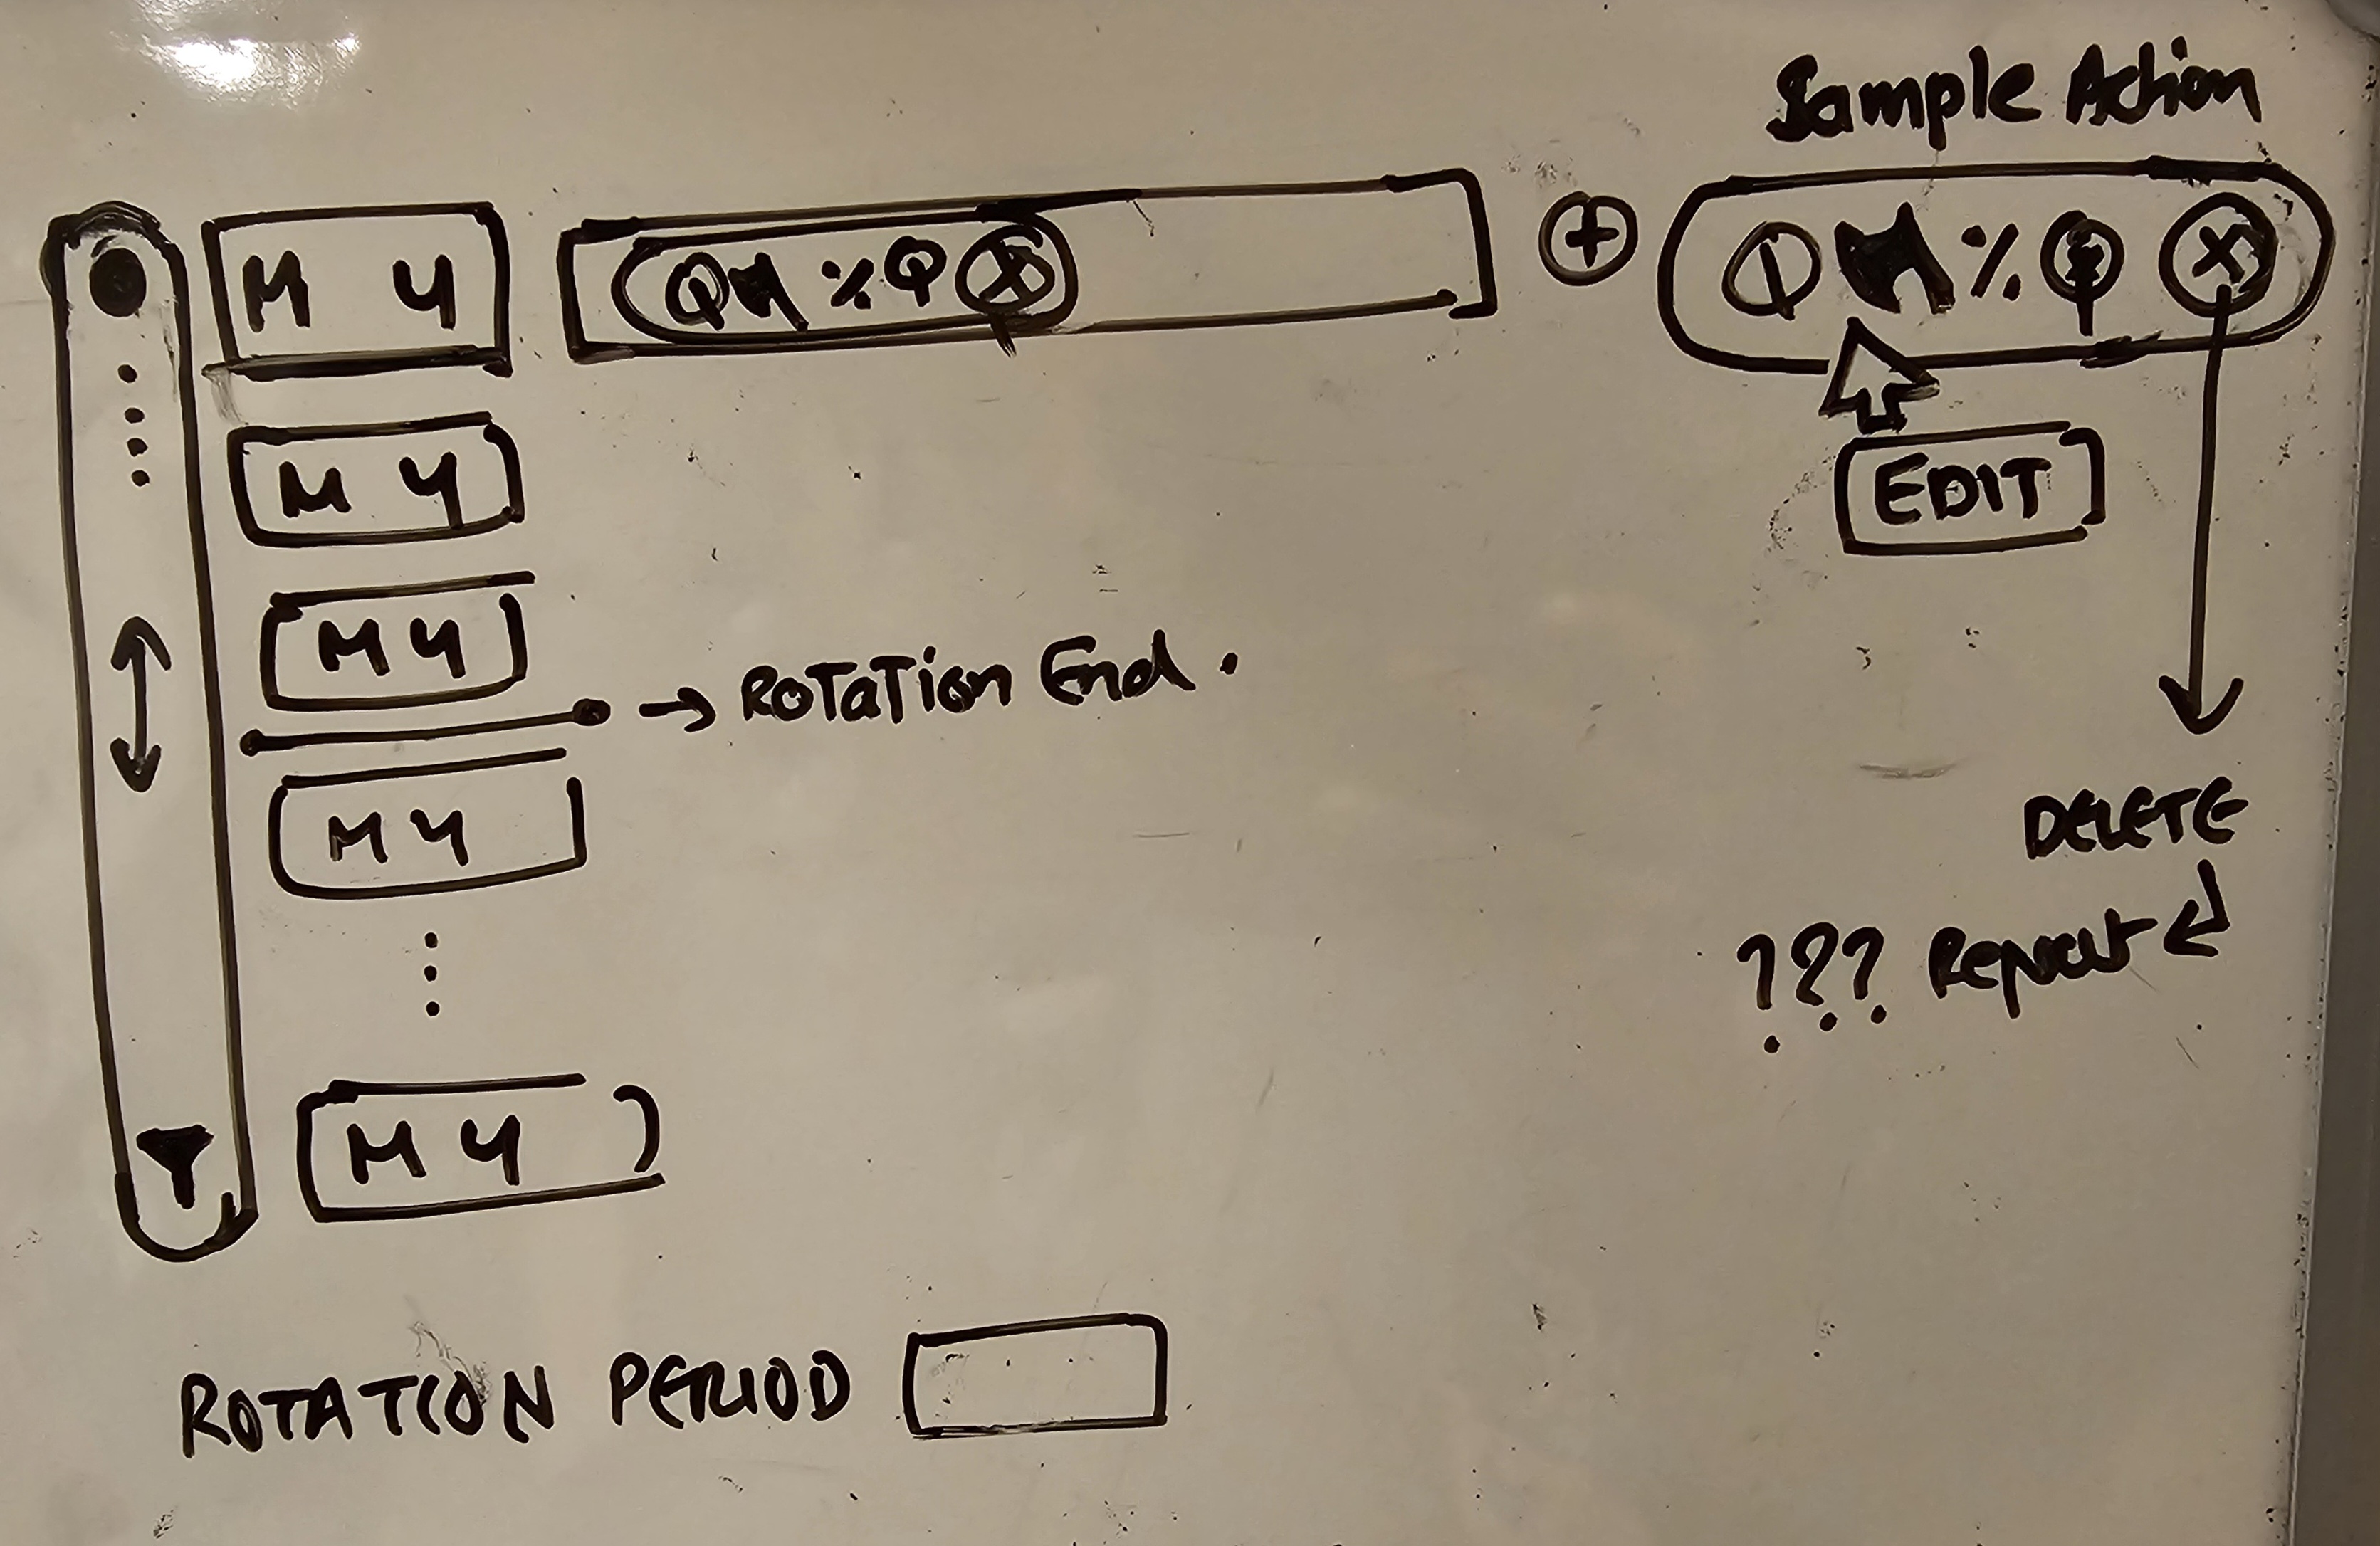 Sample Action
M Y
%
+
%
X
M Y
EDIT
M Y
→ Rotation End.
M Y
DELETE
??? Repeat
M Y
ROTATION PERIOD